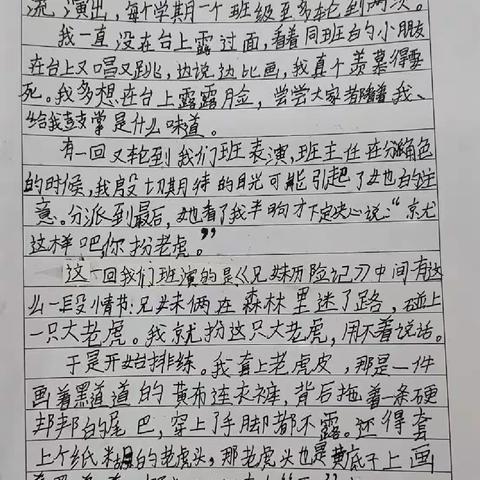 流演出，每个学期一个班级至多轮到两次。
我一直没在台上露过面，看着同班的小朋友
在台上又唱又跳，边说边比画，我真个羡慕得要
死。我多想在台上露露脸，尝尝大家都瞧着我、
给我鼓掌是什么味道。
有一回又轮到我们班表演，班主任在分角色
的时候，我殷切期待的目光可能引起了她的注
意。分派到最后，她看了我半晌才下定决心说：“就
这样吧，你扮老虎。”
这一回我们班演的是《兄妹历险记》中间有这
么一段情节：兄妹俩在森林里迷了路，碰上
一只大老虎。我就扮这只大老虎，用不着说话。
于是开始排练。我套上老虎皮，那是一件
画着黑道道的黄布连衣裤，背后拖着一条硬
邦邦的尾巴，穿上了手脚都不露。还得套
上个纸糊的老虎头，那老虎头也是黄底子上画